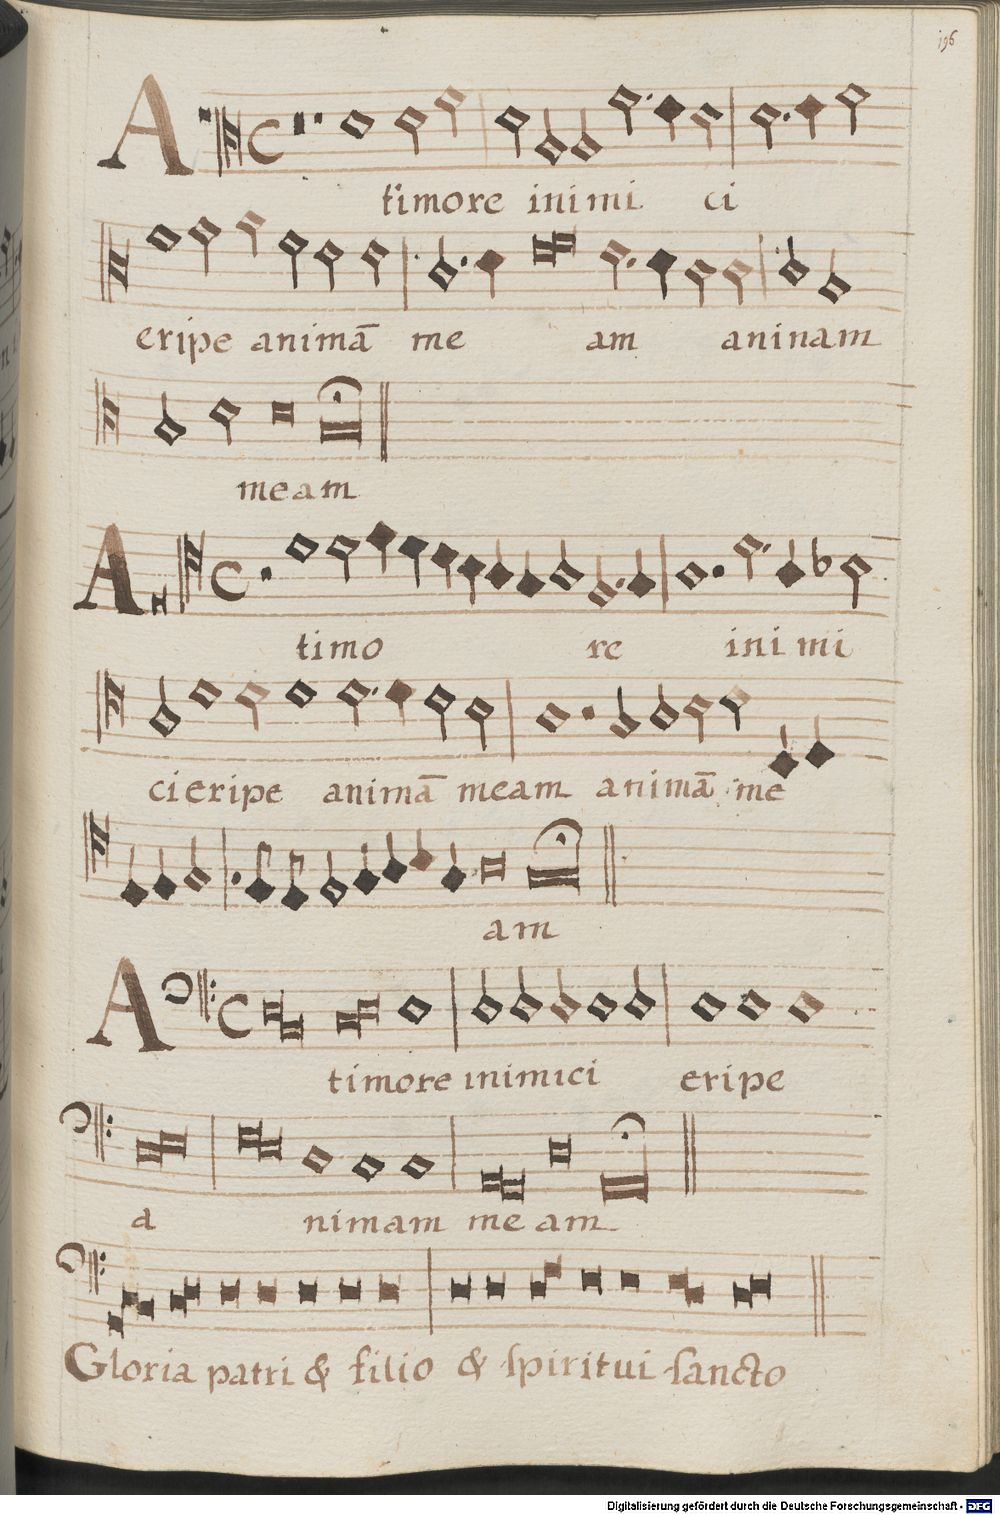 196
A timore inimi ci
eripe animā me am aninam
meam
A timo re inimi
ci eripe animā meam animā me
am
A timore inimici eripe
a nimam me am
Gloria patri & filio & spiritui sancto
Digitalisierung gefördert durch die Deutsche Forschungsgemeinschaft - DFG